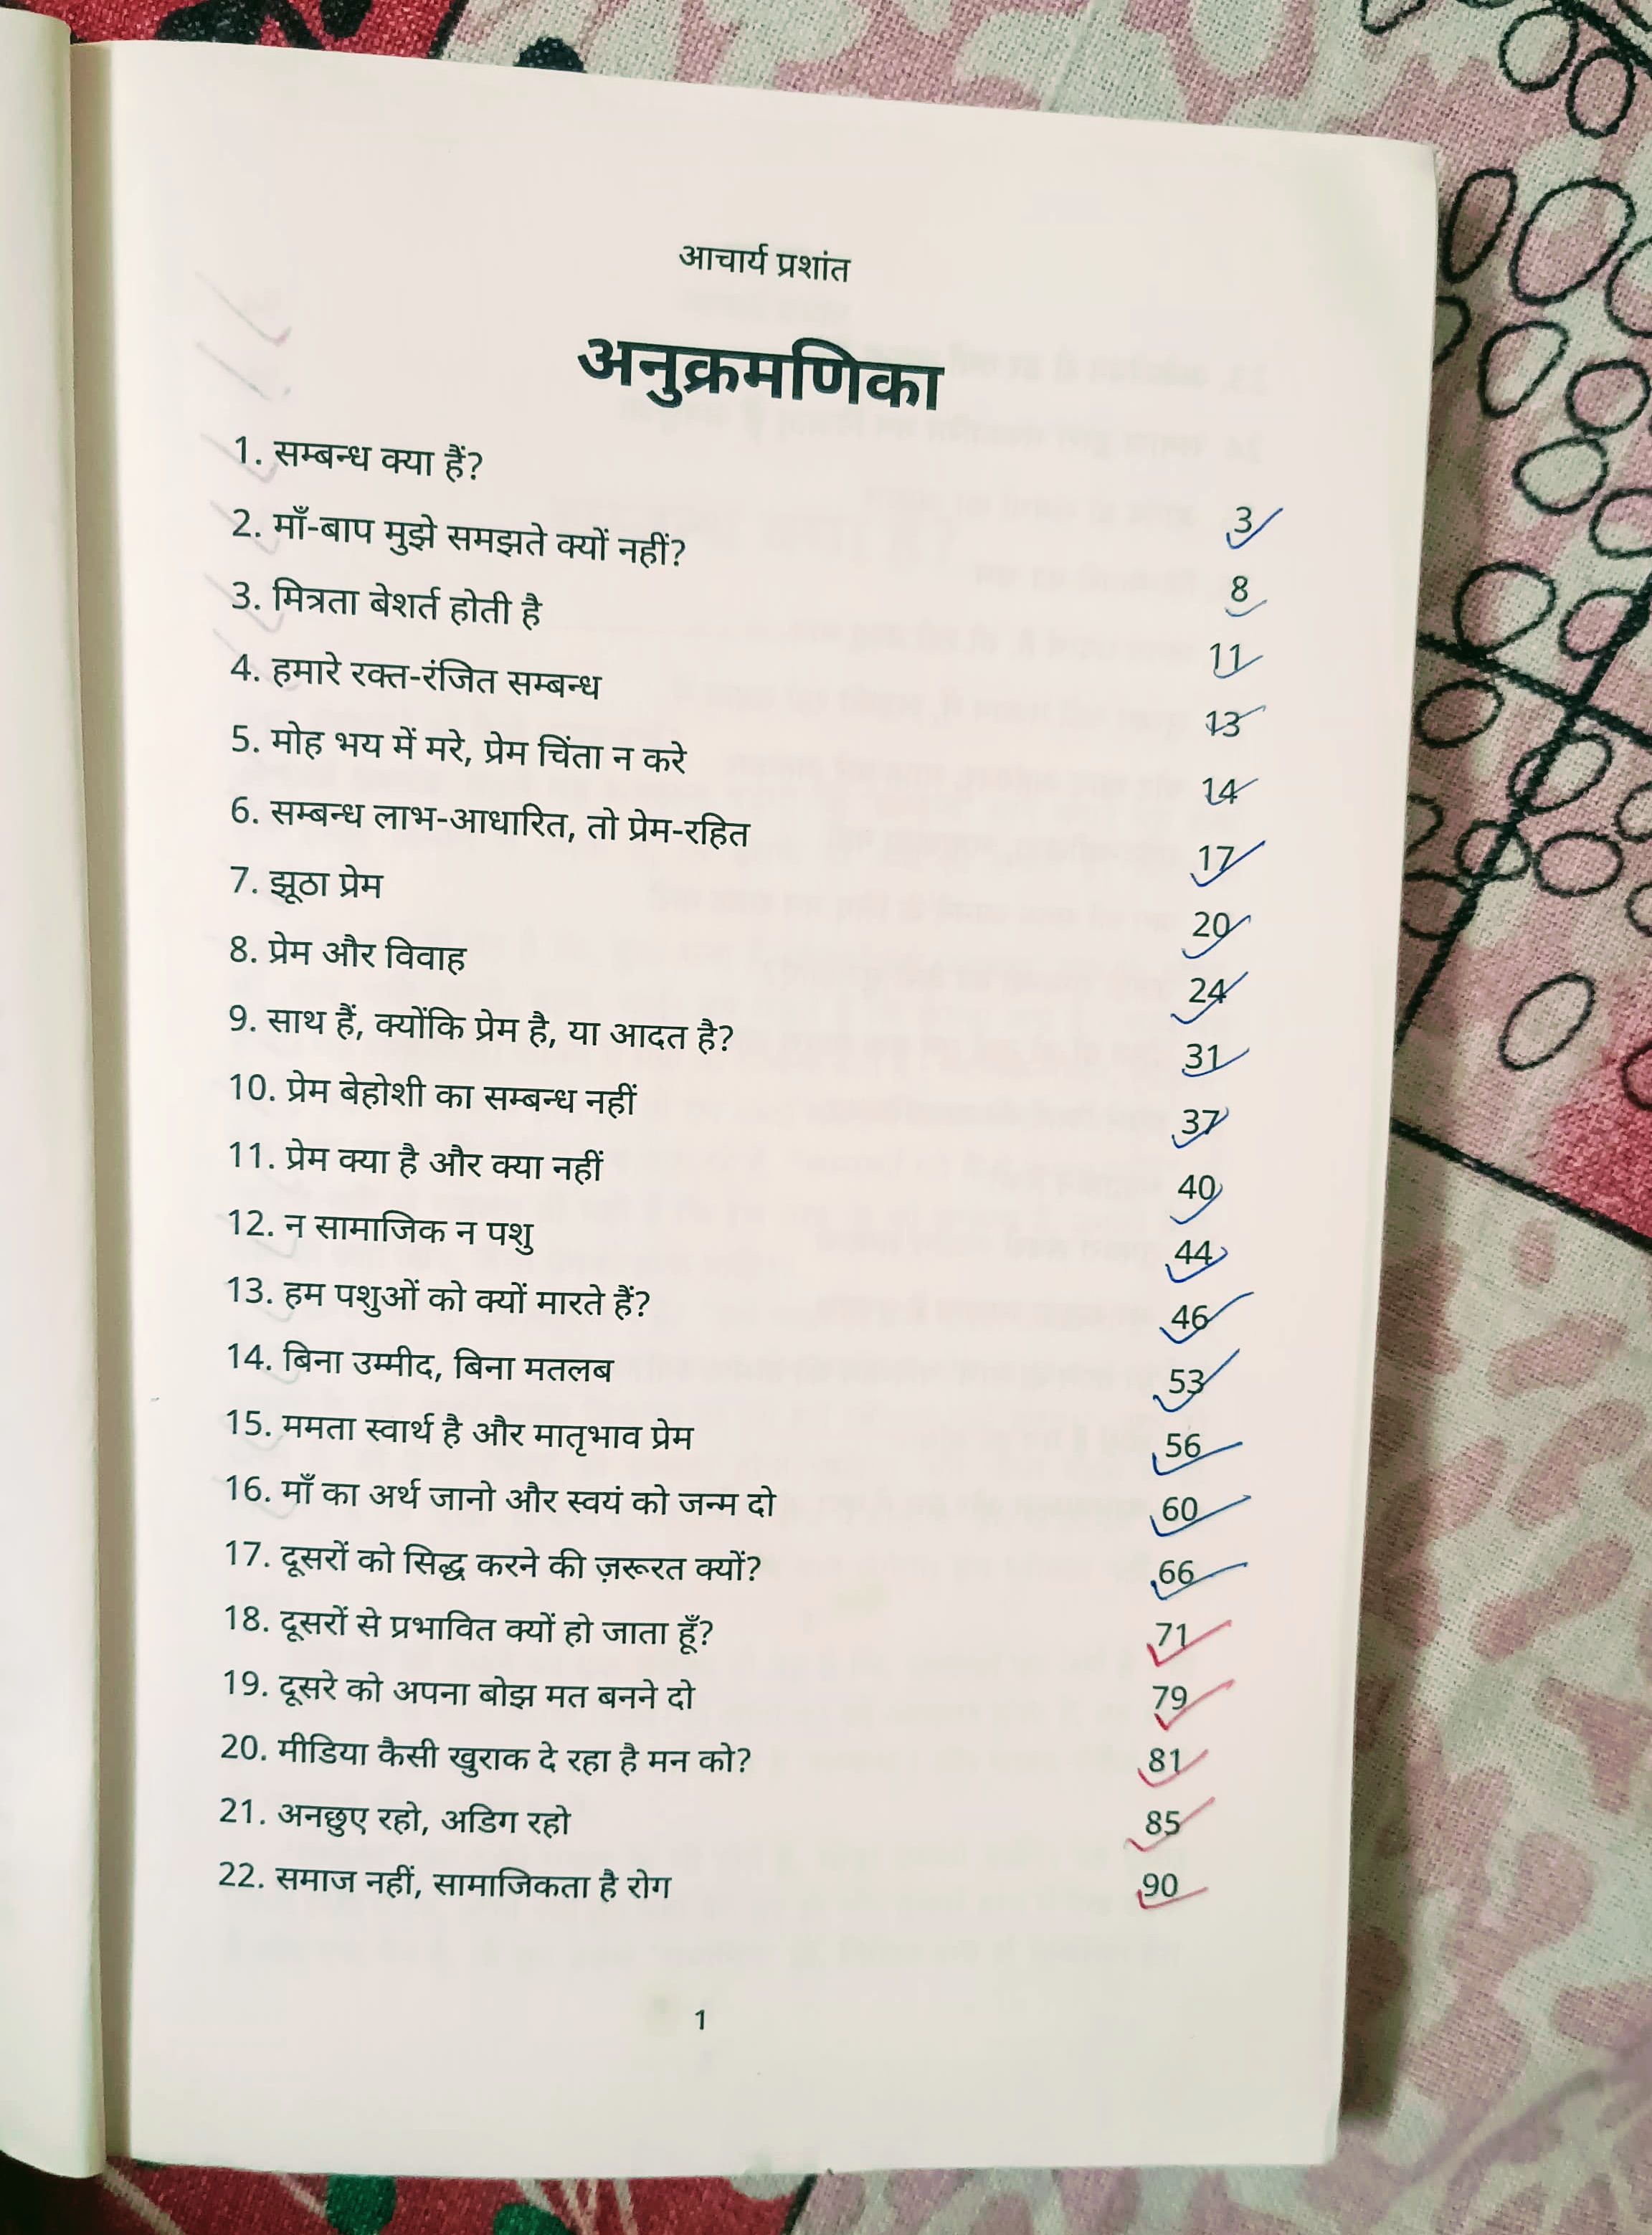 आचार्य प्रशांत
अनुक्रमणिका
1. सम्बन्ध क्या हैं? 3
2. माँ-बाप मुझे समझते क्यों नहीं? 8
3. मित्रता बेशर्त होती है 11
4. हमारे रक्त-रंजित सम्बन्ध 13
5. मोह भय में मरे, प्रेम चिंता न करे 14
6. सम्बन्ध लाभ-आधारित, तो प्रेम-रहित 17
7. झूठा प्रेम 20
8. प्रेम और विवाह 24
9. साथ हैं, क्योंकि प्रेम है, या आदत है? 31
10. प्रेम बेहोशी का सम्बन्ध नहीं 37
11. प्रेम क्या है और क्या नहीं 40
12. न सामाजिक न पशु 44
13. हम पशुओं को क्यों मारते हैं? 46
14. बिना उम्मीद, बिना मतलब 53
15. ममता स्वार्थ है और मातृभाव प्रेम 56
16. माँ का अर्थ जानो और स्वयं को जन्म दो 60
17. दूसरों को सिद्ध करने की ज़रूरत क्यों? 66
18. दूसरों से प्रभावित क्यों हो जाता हूँ? 71
19. दूसरे को अपना बोझ मत बनने दो 79
20. मीडिया कैसी खुराक दे रहा है मन को? 81
21. अनछुए रहो, अडिग रहो 85
22. समाज नहीं, सामाजिकता है रोग 90
1